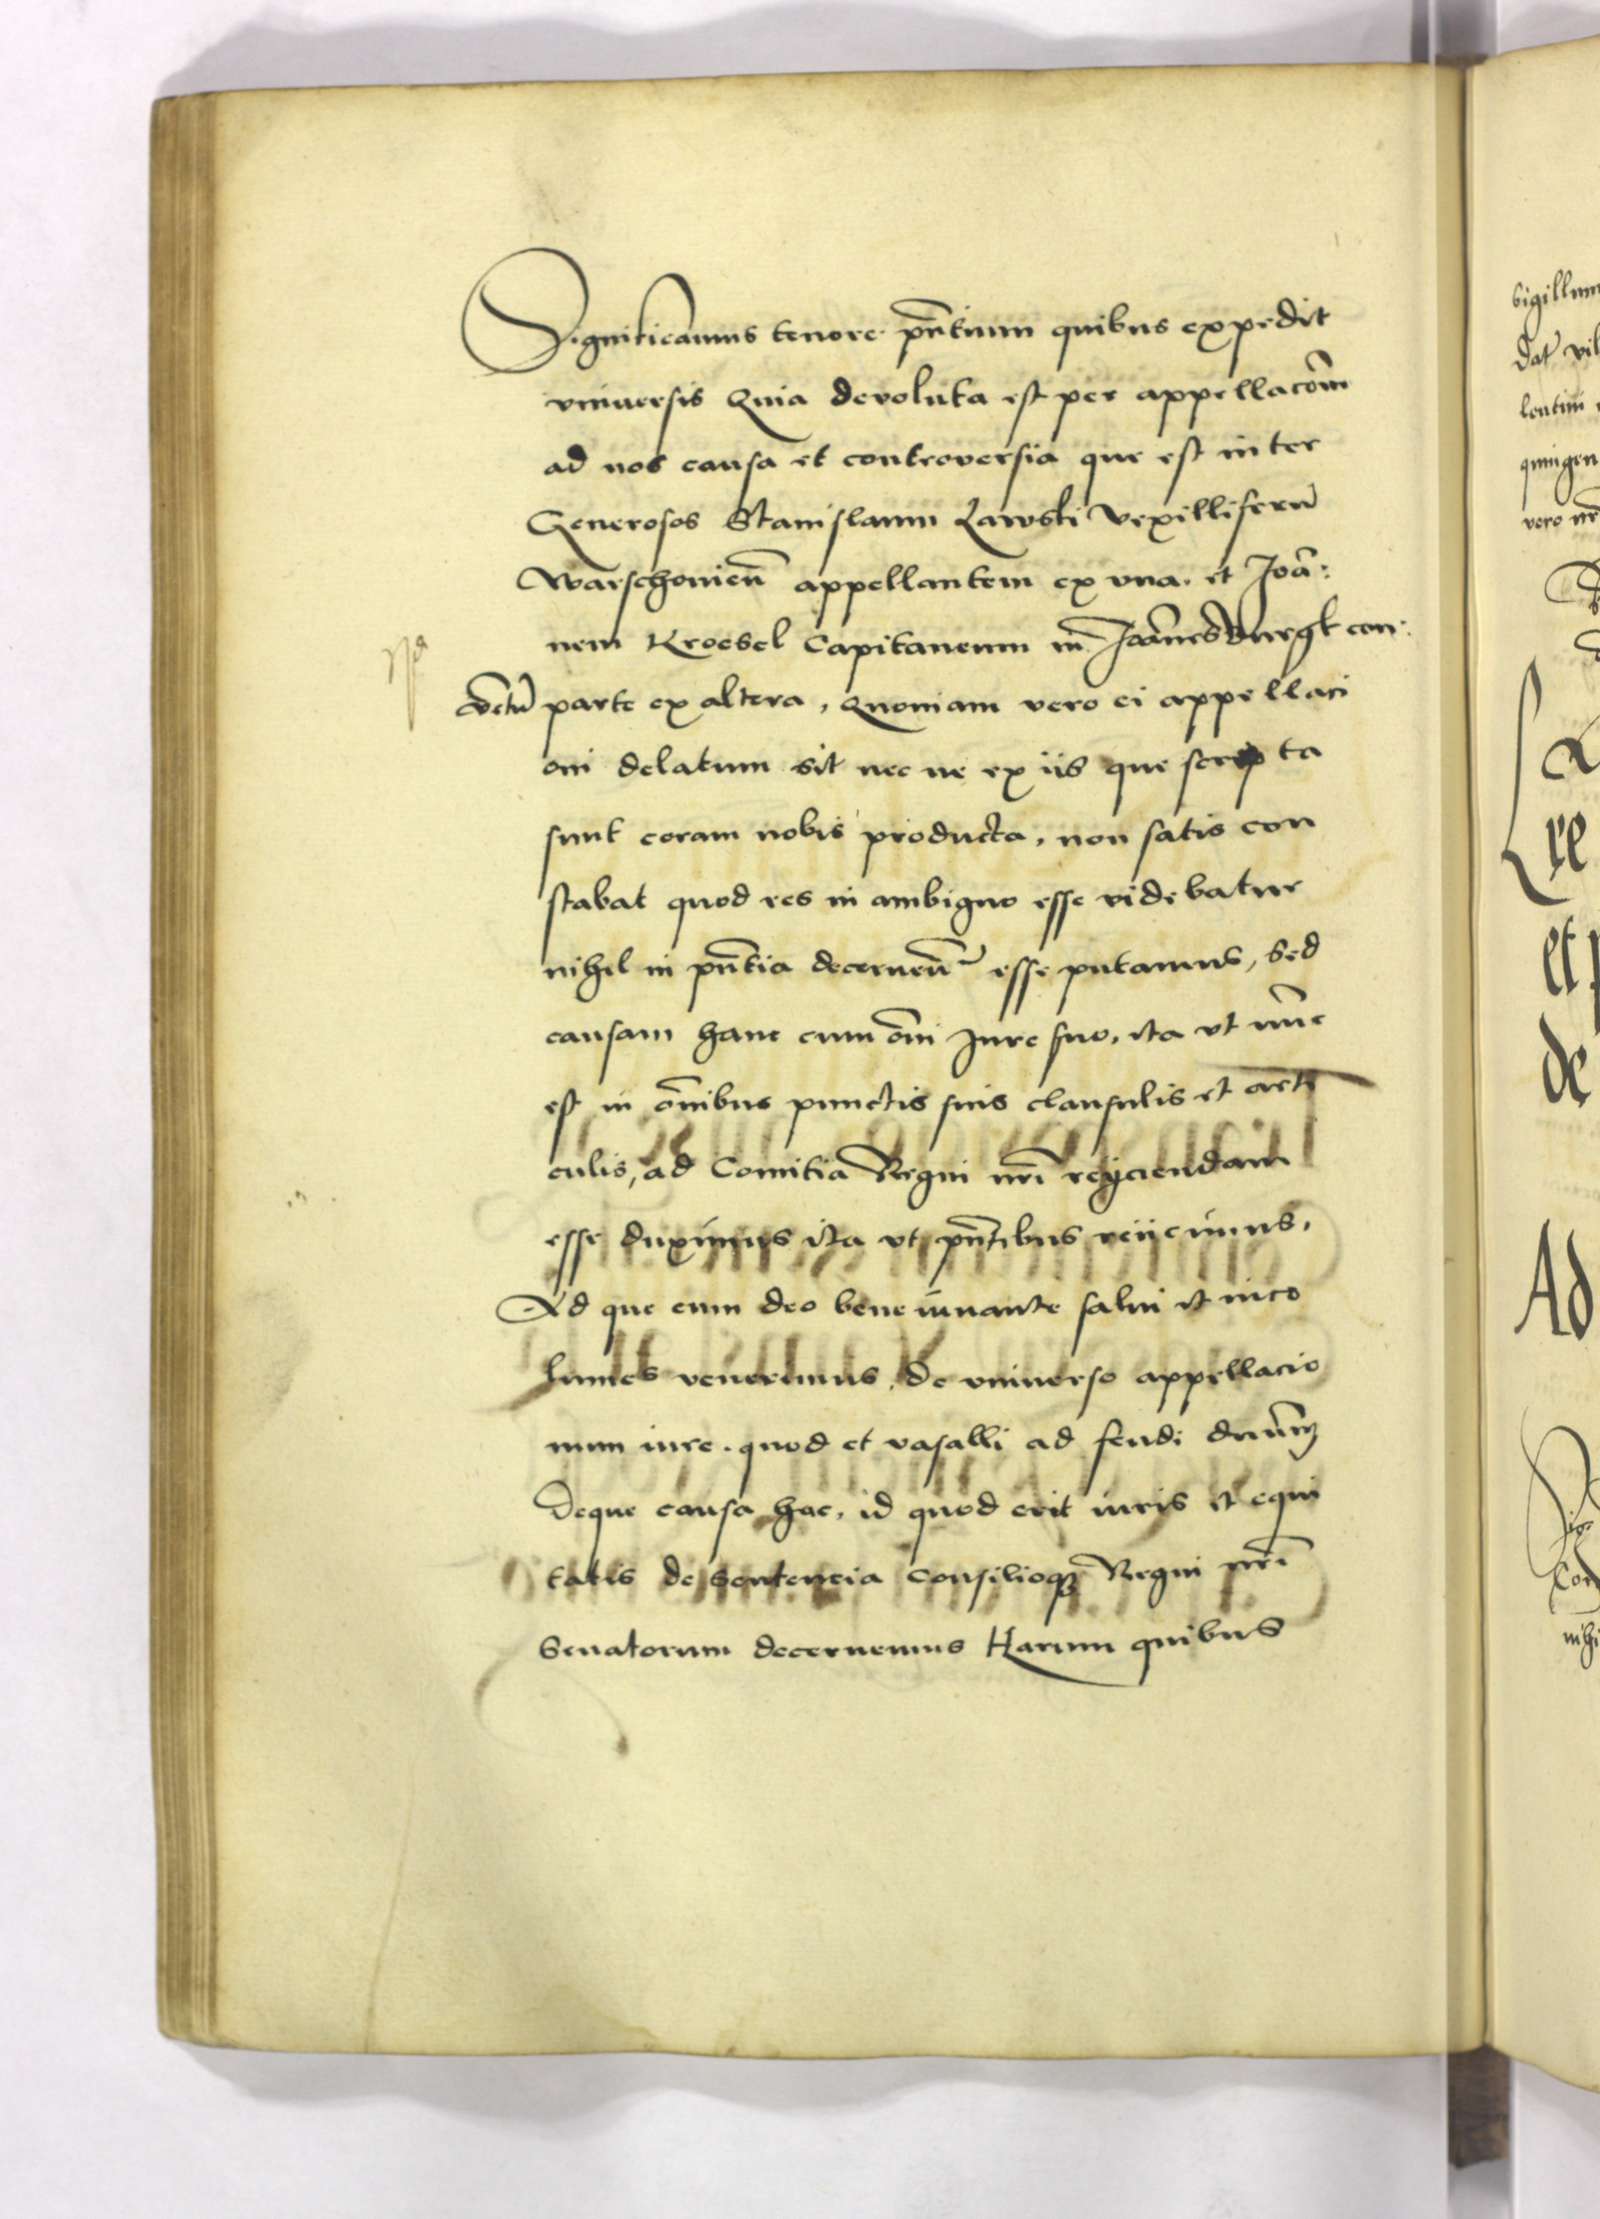 Significamus tenore pñtium quibus expedit
vniuersis Quia devoluta est per appellacõm
ad nos causa et controversia que est inter
Generosos Stanislaum Lawski Vexilliferũ
Warschovieñ appellantem ex vna. et Joã:
nem Kroesel Capitaneum in Joãnesburgk con:
parte ex altera, Quoniam vero ei appellaci
oni delatum sit nec ne ex iis que scripta
sunt coram nobis producta, non satis con
stabat quod res in ambiguo esse videbatur
nihil in pñtia decerneñ esse putamus, Sed
causam hanc cum õm Jure suo, ita vt nũc
est in õmibus punctis suis clausulis et arti
culis, ad Comitia Regni nrĩ reijciendam
esse duximus ita vt pñtibus reiicimus,
Ad que cum deo bene iuuante salui et inco
lumes venerimus, de vniuerso appellacio
num iure. quod et vasalli ad feudi
Deque causa hac, id quod erit iuris et equi
tatis de sentencia consilioq3 Regni nrĩ
Senatorum decernemus Harum quibus
sigillum
Dat vil
lentim
quingen
vero nr
re
et p
de
Ad
nihi